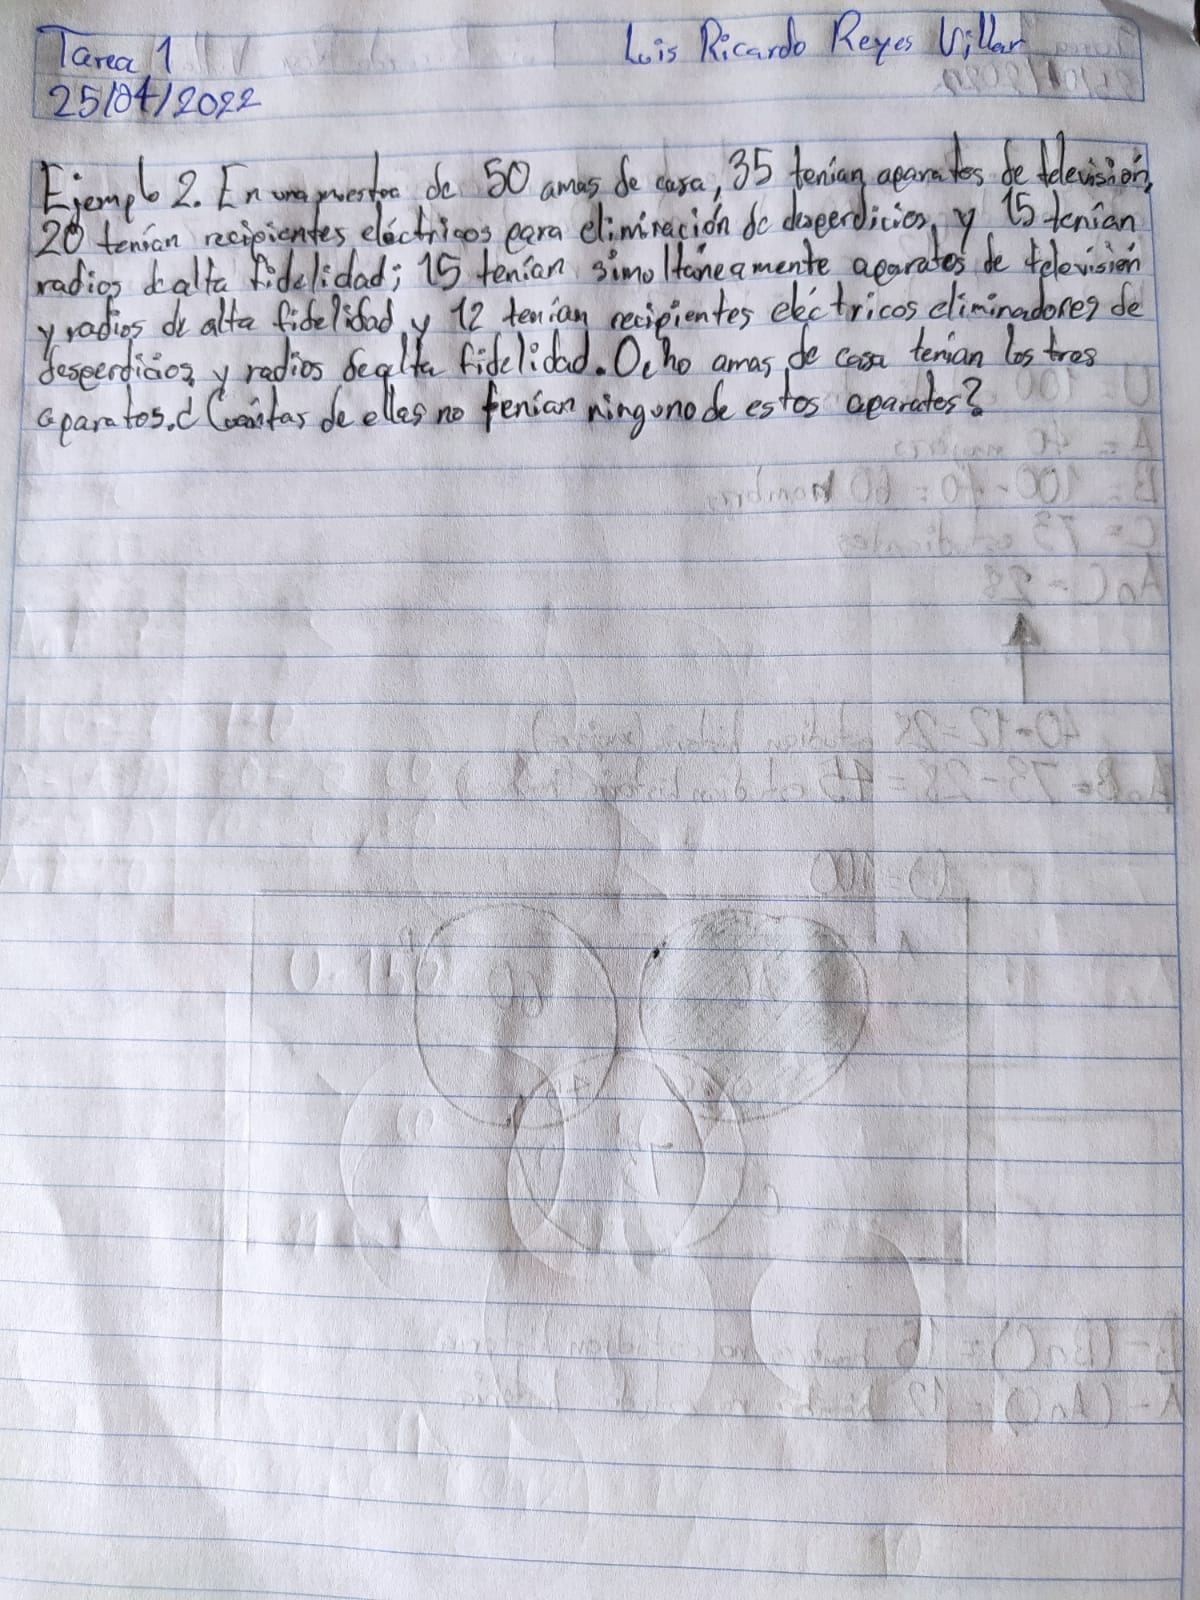 Tarea 1
Luis Ricardo Reyes Villar
25/04/2022
Ejemplo 2. En una muestra de 50 amas de casa, 35 tenían aparatos de televisión,
20 tenían recipientes eléctricos para eliminación de desperdicios, y 15 tenían
radios de alta fidelidad; 15 tenían simultáneamente aparatos de televisión
y radios de alta fidelidad y 12 tenían recipientes eléctricos eliminadores de
desperdicios y radios de alta fidelidad. Ocho amas de casa tenían los tres
aparatos. ¿Cuántas de ellas no tenían ninguno de estos aparatos?